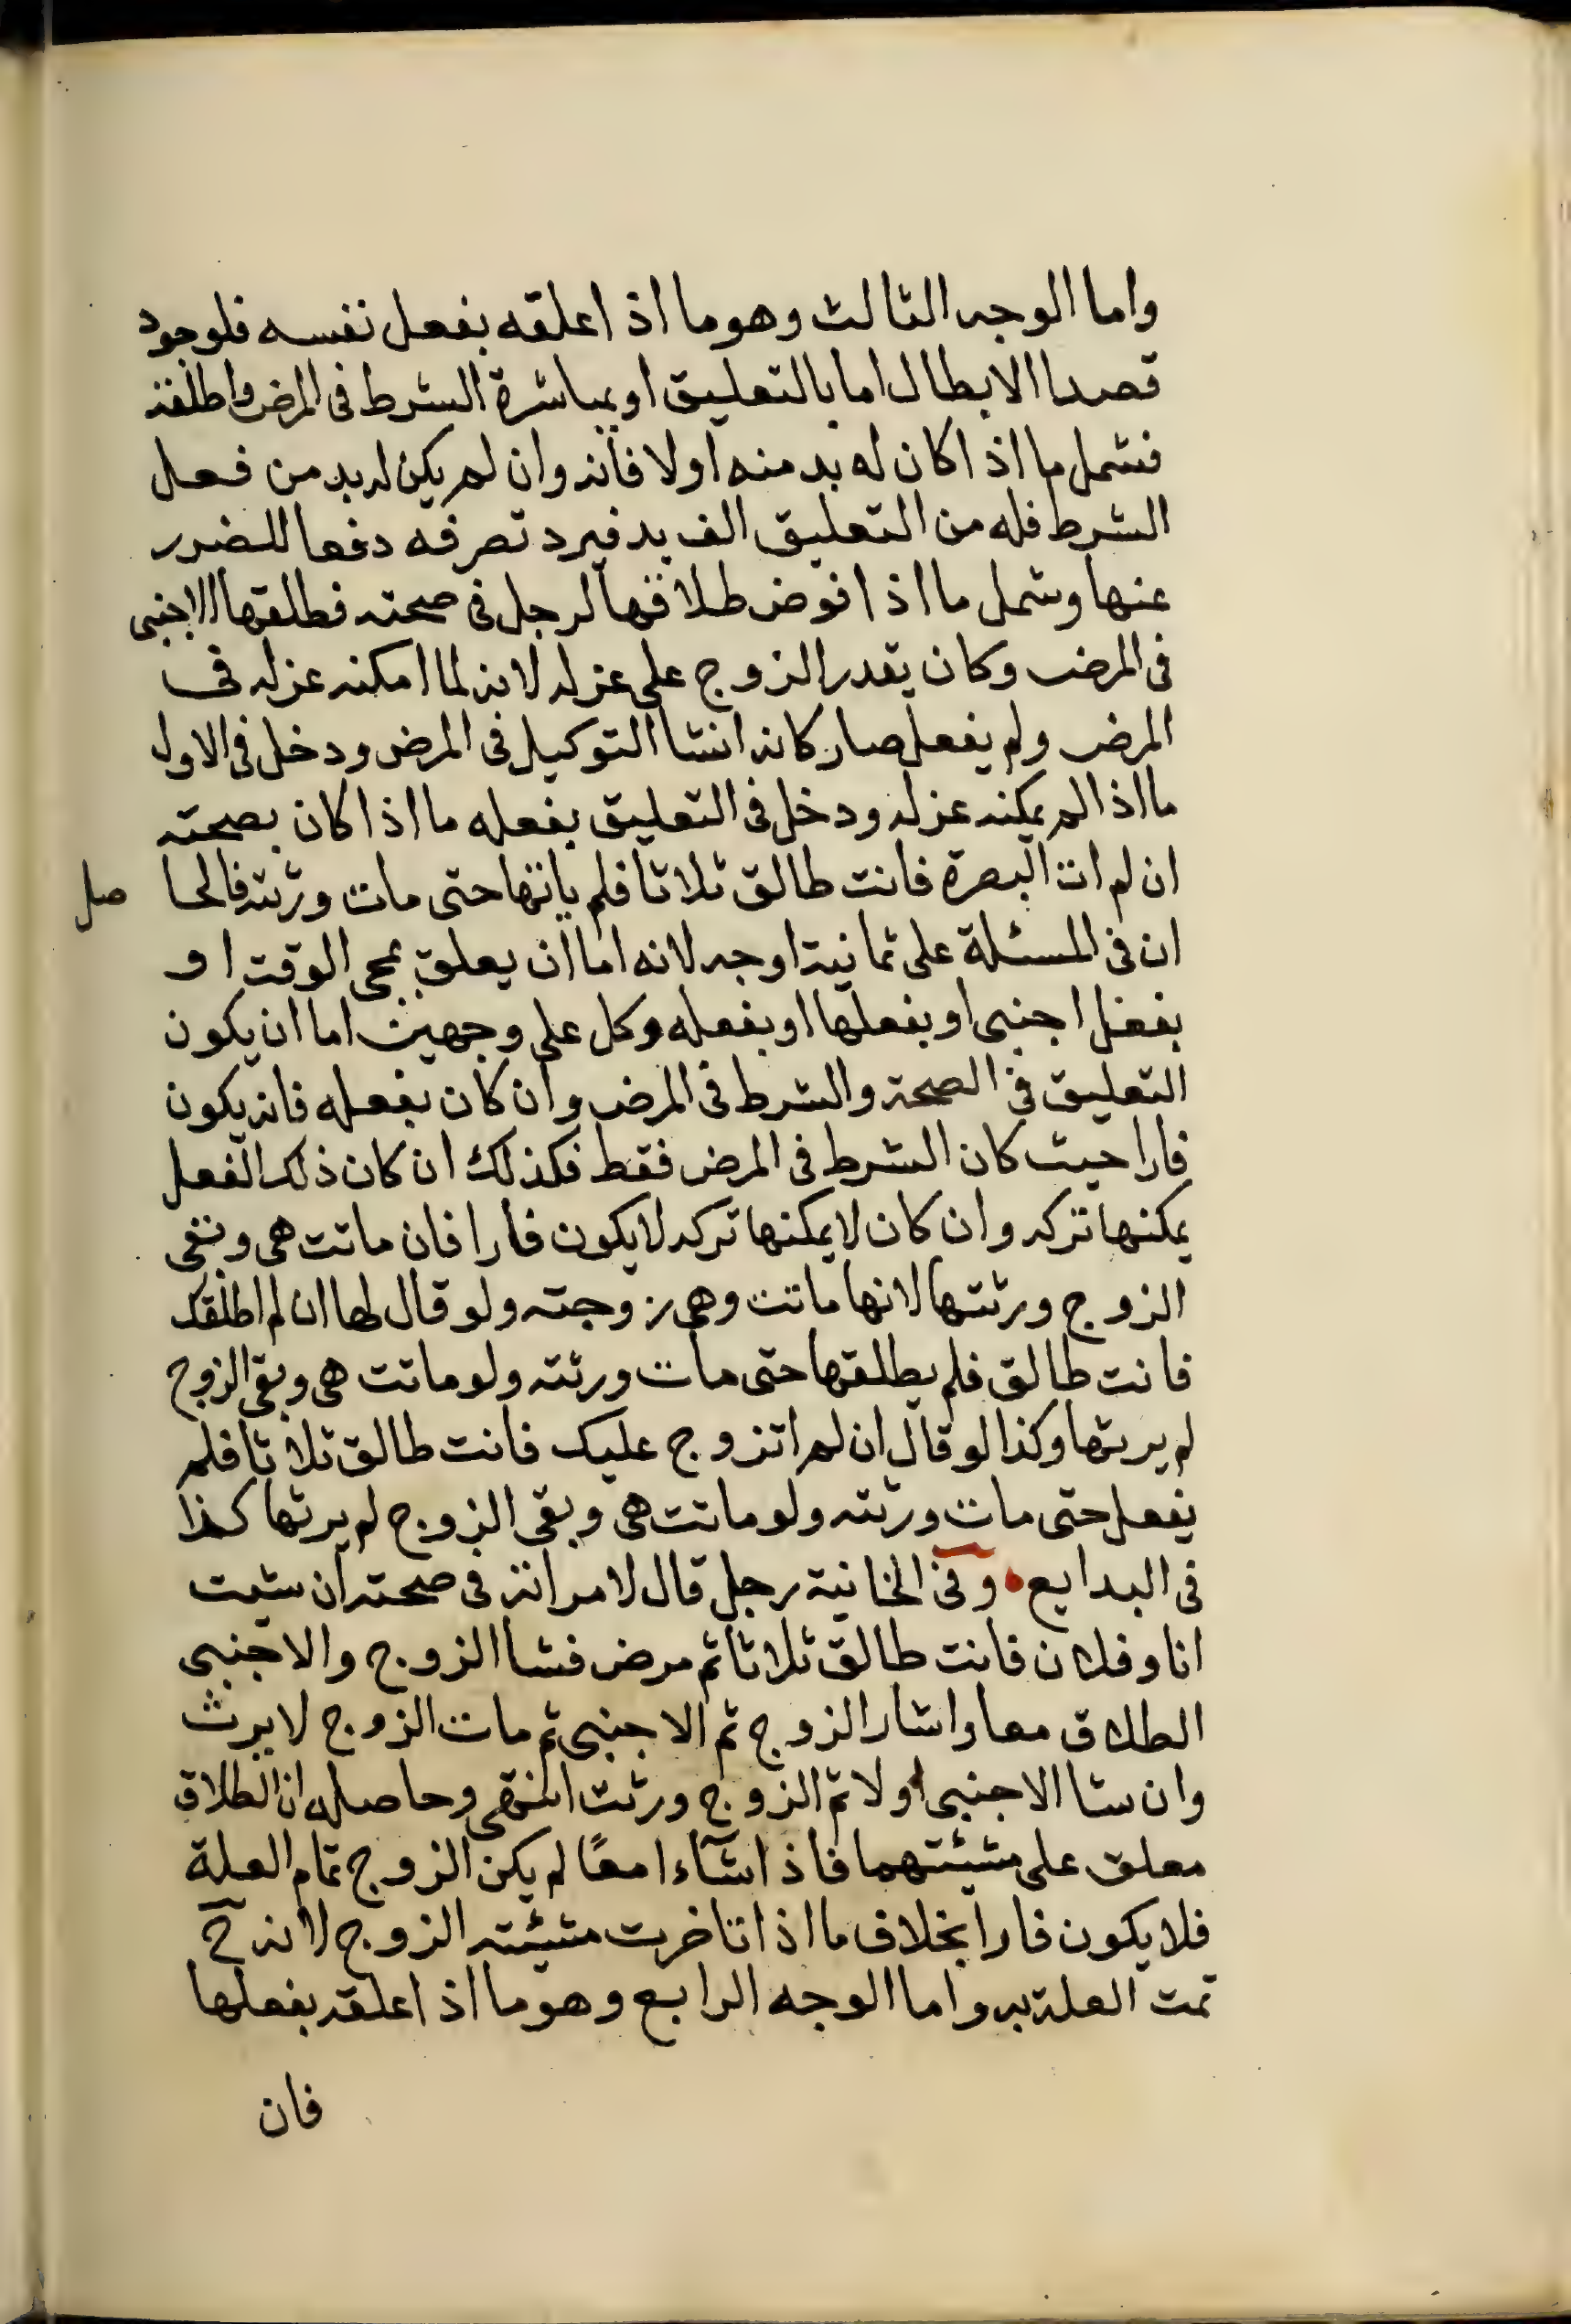 واما الوجه الثالث وهو ما اذا علقه بفعل نفسه فلوجود
قصدا الابطال اما بالتعليق او بمباشرة الشرط فى المرض واطلقه
فشمل ما اذا كان له بد منه اولا فانه وان لم يكن له بد من فعل
الشرط فله من التعليق الف بد فيرد تصرفه دفعا للضرر
عنها وشمل ما اذا فوض طلاقها لرجل فى صحته فطلقها الاجنبى
فى المرض وكان يقدر الزوج على عزله لانه لما امكنه عزله فى
المرض ولم يفعل صار كانه انشا التوكيل فى المرض ودخل فى الاول
ما اذا لم يمكنه عزله ودخل فى التعليق بفعله ما اذا كان بصحته
ان لم ات البصرة فانت طالق ثلاثا فلم ياتها حتى مات ورثته فالحا صل
ان فى المسئلة على ثمانية اوجه لانه اما ان يعلق بمجى الوقت او
بفعل اجنبى او بفعلها او بفعله وكل على وجهين اما ان يكون
التعليق فى الصحة والشرط فى المرض وان كان بفعله فانه يكون
فارا حيث كان الشرط فى المرض فقط فكذلك ان كان ذلك الفعل
يمكنها تركه وان كان لا يمكنها تركه لا يكون فارا فان ماتت هى وبقى
الزوج ورثتها لانها ماتت وهى زوجته ولو قال لها ان لم اطلقك
فانت طالق فلم يطلقها حتى مات ورثته ولو ماتت هى وبقى الزوج
لم يرثها وكذا لو قال ان لم اتزوج عليك فانت طالق ثلاثا فلم
يفعل حتى مات ورثته ولو ماتت هى وبقى الزوج لم يرثها كذا
فى البدايع وفى الخانية رجل قال لامراته فى صحته ان شيت
انا وفلان فانت طالق ثلاثا ثم مرض فشا الزوج والاجنبى
الطلاق معا واشار الزوج ثم الاجنبى ثم مات الزوج لا يرث
وان شا الاجنبى اولا ثم الزوج ورثت انتهى وحاصله ان الطلاق
معلق على مشيئتهما فاذا شآءا معًا لم يكن الزوج تمام العلة
فلا يكون فارا بخلاف ما اذا تاخرت مشيئته الزوج لانه ح
تمت العلة به واما الوجه الرابع وهو ما اذا علقه بفعلها
فان